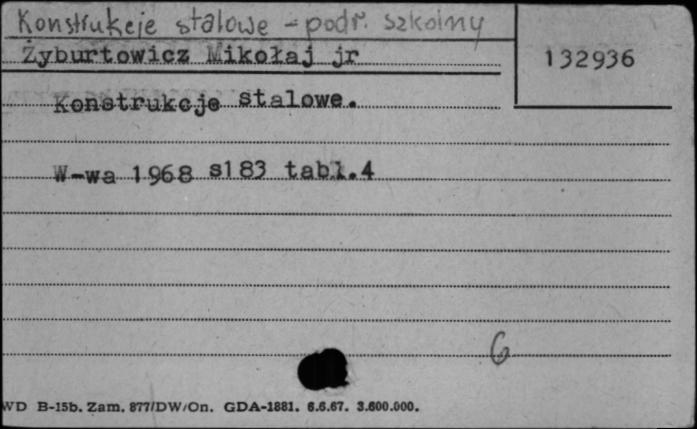 Konstrukcje stalowe - podr. szkolny
Żyburtowicz Mikołaj jr
132936
Konstrukcje stalowe.
W-wa 1968 s183 tabl.4
6
WD B-15b. Zam. 877/DW/On. GDA-1881. 6.6.67. 3.600.000.